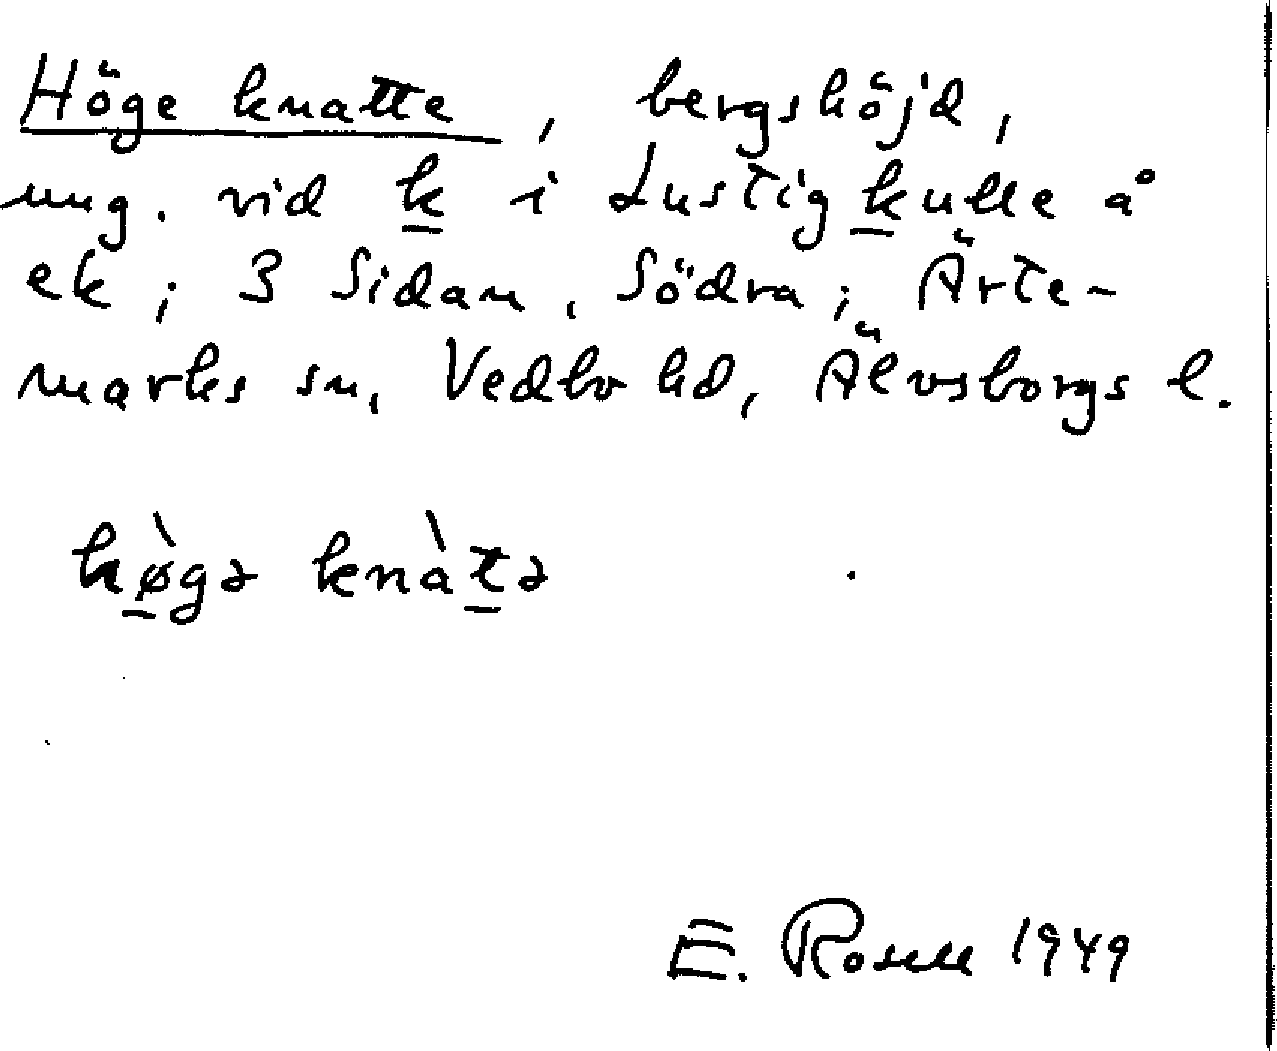 Höge knatte, bergshöjd,
ung. vid k i Lustigkulle å
ek; 3 Sidan, Södra; Ärte-
marks sn, Vedbo hd, Älvsborgs l.
hø̀gə knàtə
E. Rosell 1949